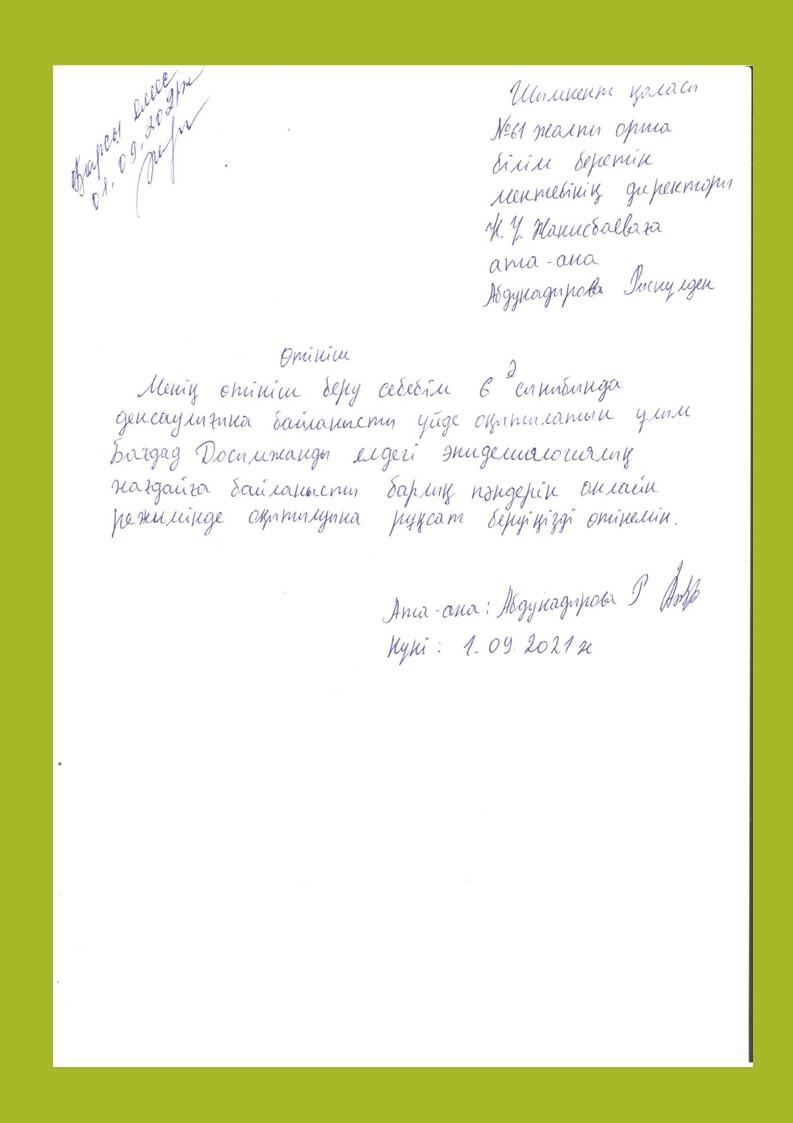 Қарсы емес
01.09.2021ж
Шымкент қаласы
№61 жалпы орта
білім беретін
мектебінің директоры
К.У. Жанисбаеваға
ата-ана
Абдукадирова Рыскулден
Өтініш
Менің өтініш беру себебім 6 "Ә" сыныбында
денсаулығына байланысты үйде оқытылатын ұлым
Бағдад Досымжанды елдегі эпидемиялогиялық
жағдайға байланысты барлық пәндерін онлайн
режимінде оқытылуына рұқсат беруіңізді өтінемін.
Ата-ана: Абдукадирова Р
Күні: 1.09.2021ж